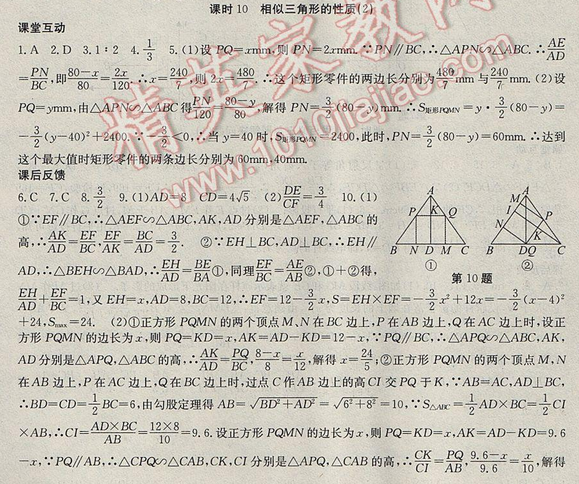 课时10 相似三角形的性质(2)
课堂互动
1.A 2.D 3.1∶2 4.1/3 5.(1)设PQ=xmm,则PN=2xmm.∵PN∥BC,∴△APN∽△ABC.∴AE/AD
=PN/BC,即80-x/80=2x/120.∴x=240/7,则2x=480/7.∴这个矩形零件的两边长分别为480/7mm与240/7mm.(2)设
PQ=ymm,由△APN∽△ABC得PN/120=80-y/80.解得PN=3/2(80-y)mm.∴S矩形PQMN=y·3/2(80-y)=
-3/2(y-40)²+2400.∵-3/2<0,∴当y=40时,S矩形PQMN=2400,此时,PN=3/2(80-y)=60mm.∴达到
这个最大值时矩形零件的两条边长分别为60mm,40mm.
课后反馈
6.C 7.C 8.3/2 9.(1)AD=8 CD=4√5 (2)DE/CF=3/4 10.(1)
①∵EF∥BC,∴△AEF∽△ABC,AK,AD分别是△AEF,△ABC的
高,∴AK/AD=EF/BC,EF/AK=BC/AD=3/2. ②∵EH⊥BC,AD⊥BC,∴EH∥
AD,∴△BEH∽△BAD,∴EH/AD=BE/BA①,同理EF/BC=AE/AB②,①+②得,
EH/AD+EF/BC=1,又EH=x,AD=8,BC=12,∴EF=12-3/2x,S=EH×EF=-3/2x²+12x=-3/2(x-4)²
+24,Smax=24. (2)①正方形PQMN的两个顶点M、N在BC边上,P在AB边上,Q在AC边上时,设正
方形PQMN的边长为x,则PQ=KD=x,AK=AD-KD=12-x,∵PQ∥BC,∴△APQ∽△ABC,AK,
AD分别是△APQ,△ABC的高,∴AK/AD=PQ/BC,8-x/8=x/12,解得x=24/5;②正方形PQMN的两个顶点M,N
在AB边上,P在AC边上,Q在BC边上时,过点C作AB边上的高CI交PQ于K,∵AB=AC,AD⊥BC,
∴BD=CD=1/2BC=6,由勾股定理得AB=√BD²+AD²=√6²+8²=10,∵S△ABC=1/2AD×BC=1/2CI
×AB,∴CI=AD×BC/AB=12×8/10=9.6.设正方形PQMN的边长为x,则PQ=KD=x,AK=AD-KD=9.6
-x,∵PQ∥AB,∴△CPQ∽△CAB,CK,CI分别是△APQ,△CAB的高,∴CK/CI=PQ/AB,9.6-x/9.6=x/10,解得
A
P K Q
B N D M C
①
A
M
P
N K
B DQ C
②
第10题
精英家教网
www.1010jiajiao.com